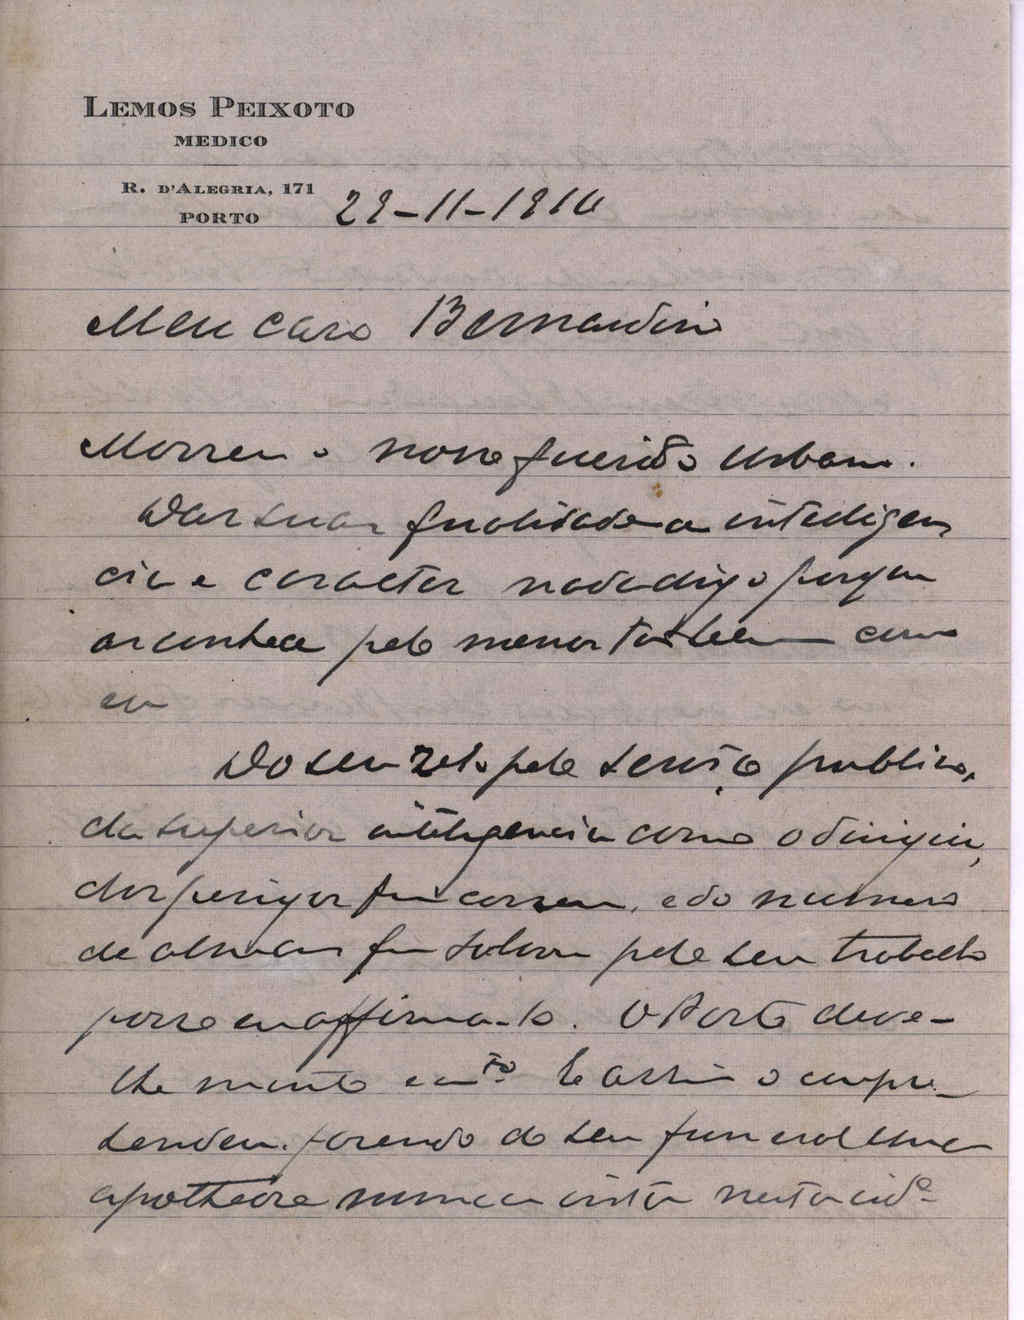 LEMOS PEIXOTO
MEDICO
R. D'ALEGRIA, 171
PORTO
29-11-1910
Meu caro Bernardino
Morreu o nosso querido Urbano.
Das suas qualidades a intelligen
cia e caracter nada digo porque
as conhece pelo menos tão bem como
eu
Do seu zelo pelo serviço publico,
da superior intelligencia como o dirigiu,
dos perigos que correu, e do numero
de que pelo seu trabalho
posso eu affirma-lo. O Porto deve-
lhe muito e m.to assim o compre-
hendeu fazendo do seu funeral uma
apotheose nunca vista nesta cid.e